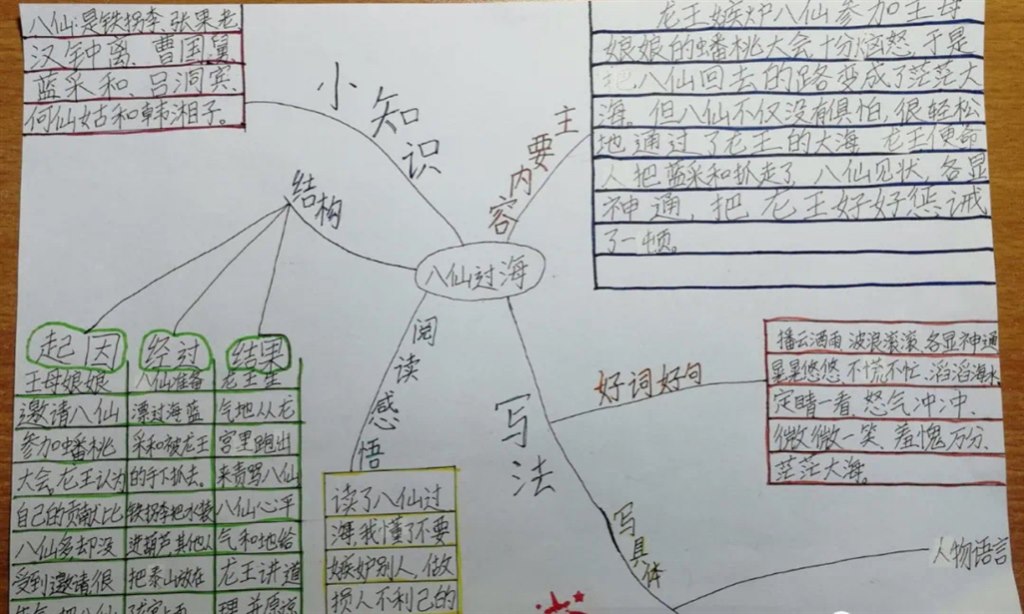 八仙是铁拐李、张果老
汉钟离、曹国舅、
蓝采和、吕洞宾、
何仙姑和韩湘子。
小知识
主要内容
龙王嫉妒八仙参加王母
娘娘的蟠桃大会十分恼怒,于是
把八仙回去的路变成了茫茫大
海。但八仙不仅没有俱怕,很轻松
地通过了龙王的大海 龙王便命
人把蓝采和抓走了 八仙见状,各显
神通,把龙王好好惩戒
了一顿。
结构
八仙过海
起因
王母娘娘
邀请八仙
参加蟠桃
大会,龙王认为
自己的贡献比
八仙多却没
受到邀请,很
经过
八仙准备
漂过海蓝
采和被龙王
的手下抓去。
铁拐李把水装
进葫芦其他人
把泰山放在
结果
龙王生
气地从龙
宫里跑出
来责骂八仙
八仙心平
气和地给
龙王讲道
阅读感悟
读了八仙过
海我懂了不要
嫉妒别人,做
损人不利己的
写法
好词好句
播云洒雨 波浪滚滚、各显神通
晃晃悠悠 不慌不忙、滔滔海水
定睛一看、怒气冲冲、
微微一笑、羞愧万分、
茫茫大海。
写具体
人物语言